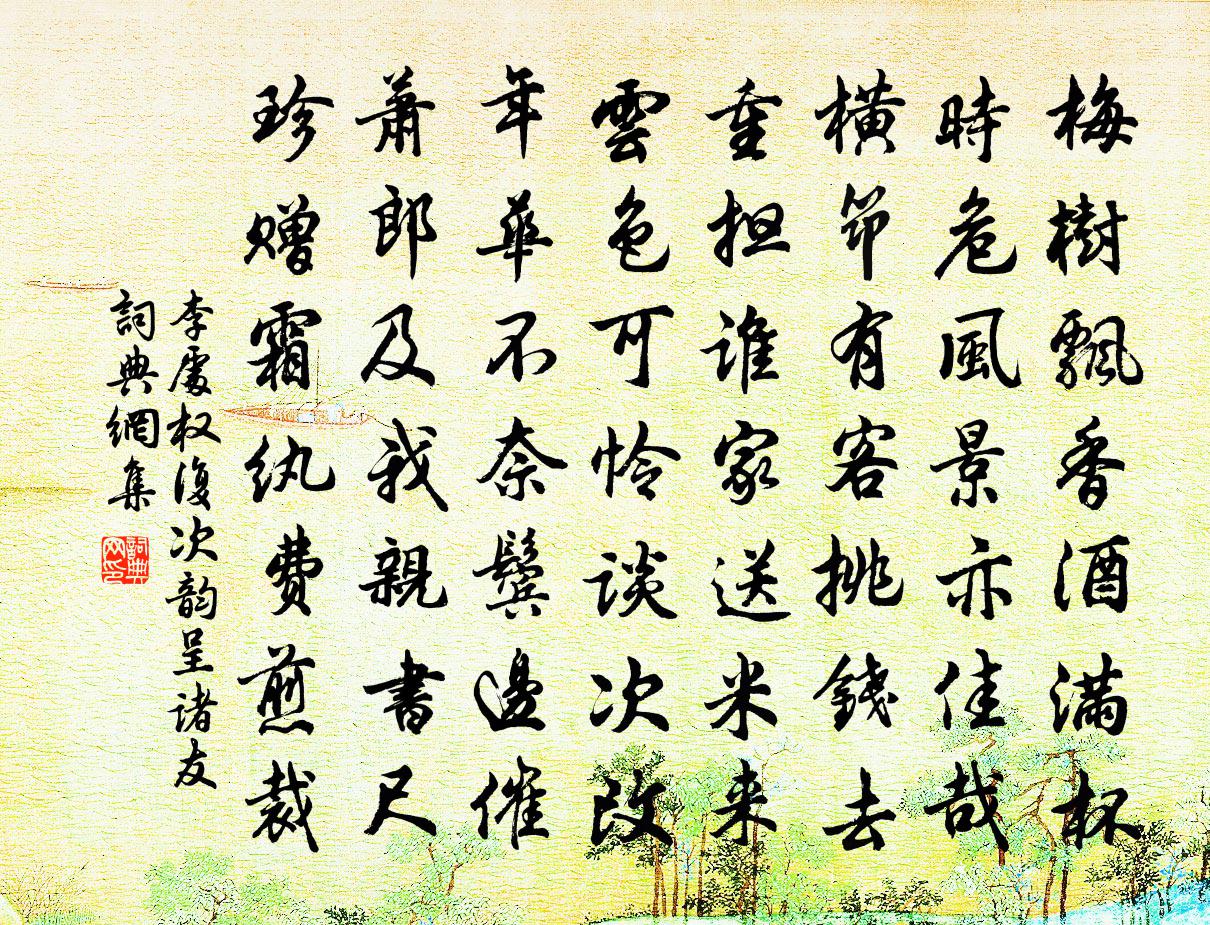 梅樹飄香酒滿杯
時危風景亦佳哉
橫笻有客挑錢去
重担誰家送米来
雲色可怜談次改
年華不奈鬓邊催
蕭郎及我親書尺
珍贈霜纨費煎裁
李處权復次韵呈诸友
詞典網集
詞典网印